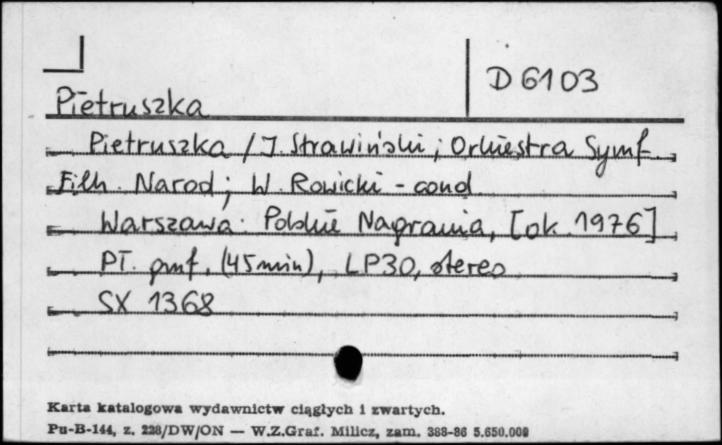 D 6103
Pietruszka
Pietruszka / I. Strawiński; Orkiestra Symf.
Filh. Narod; W. Rowicki - cond
Warszawa: Polskie Nagrania, [ok. 1976]
Pł. gmf. (45 min), LP30, stereo
SX 1368
Karta katalogowa wydawnictw ciągłych i zwartych.
Pu-B-144, z. 228/DW/ON — W.Z.Graf. Milicz, zam. 388-86 5.650.000